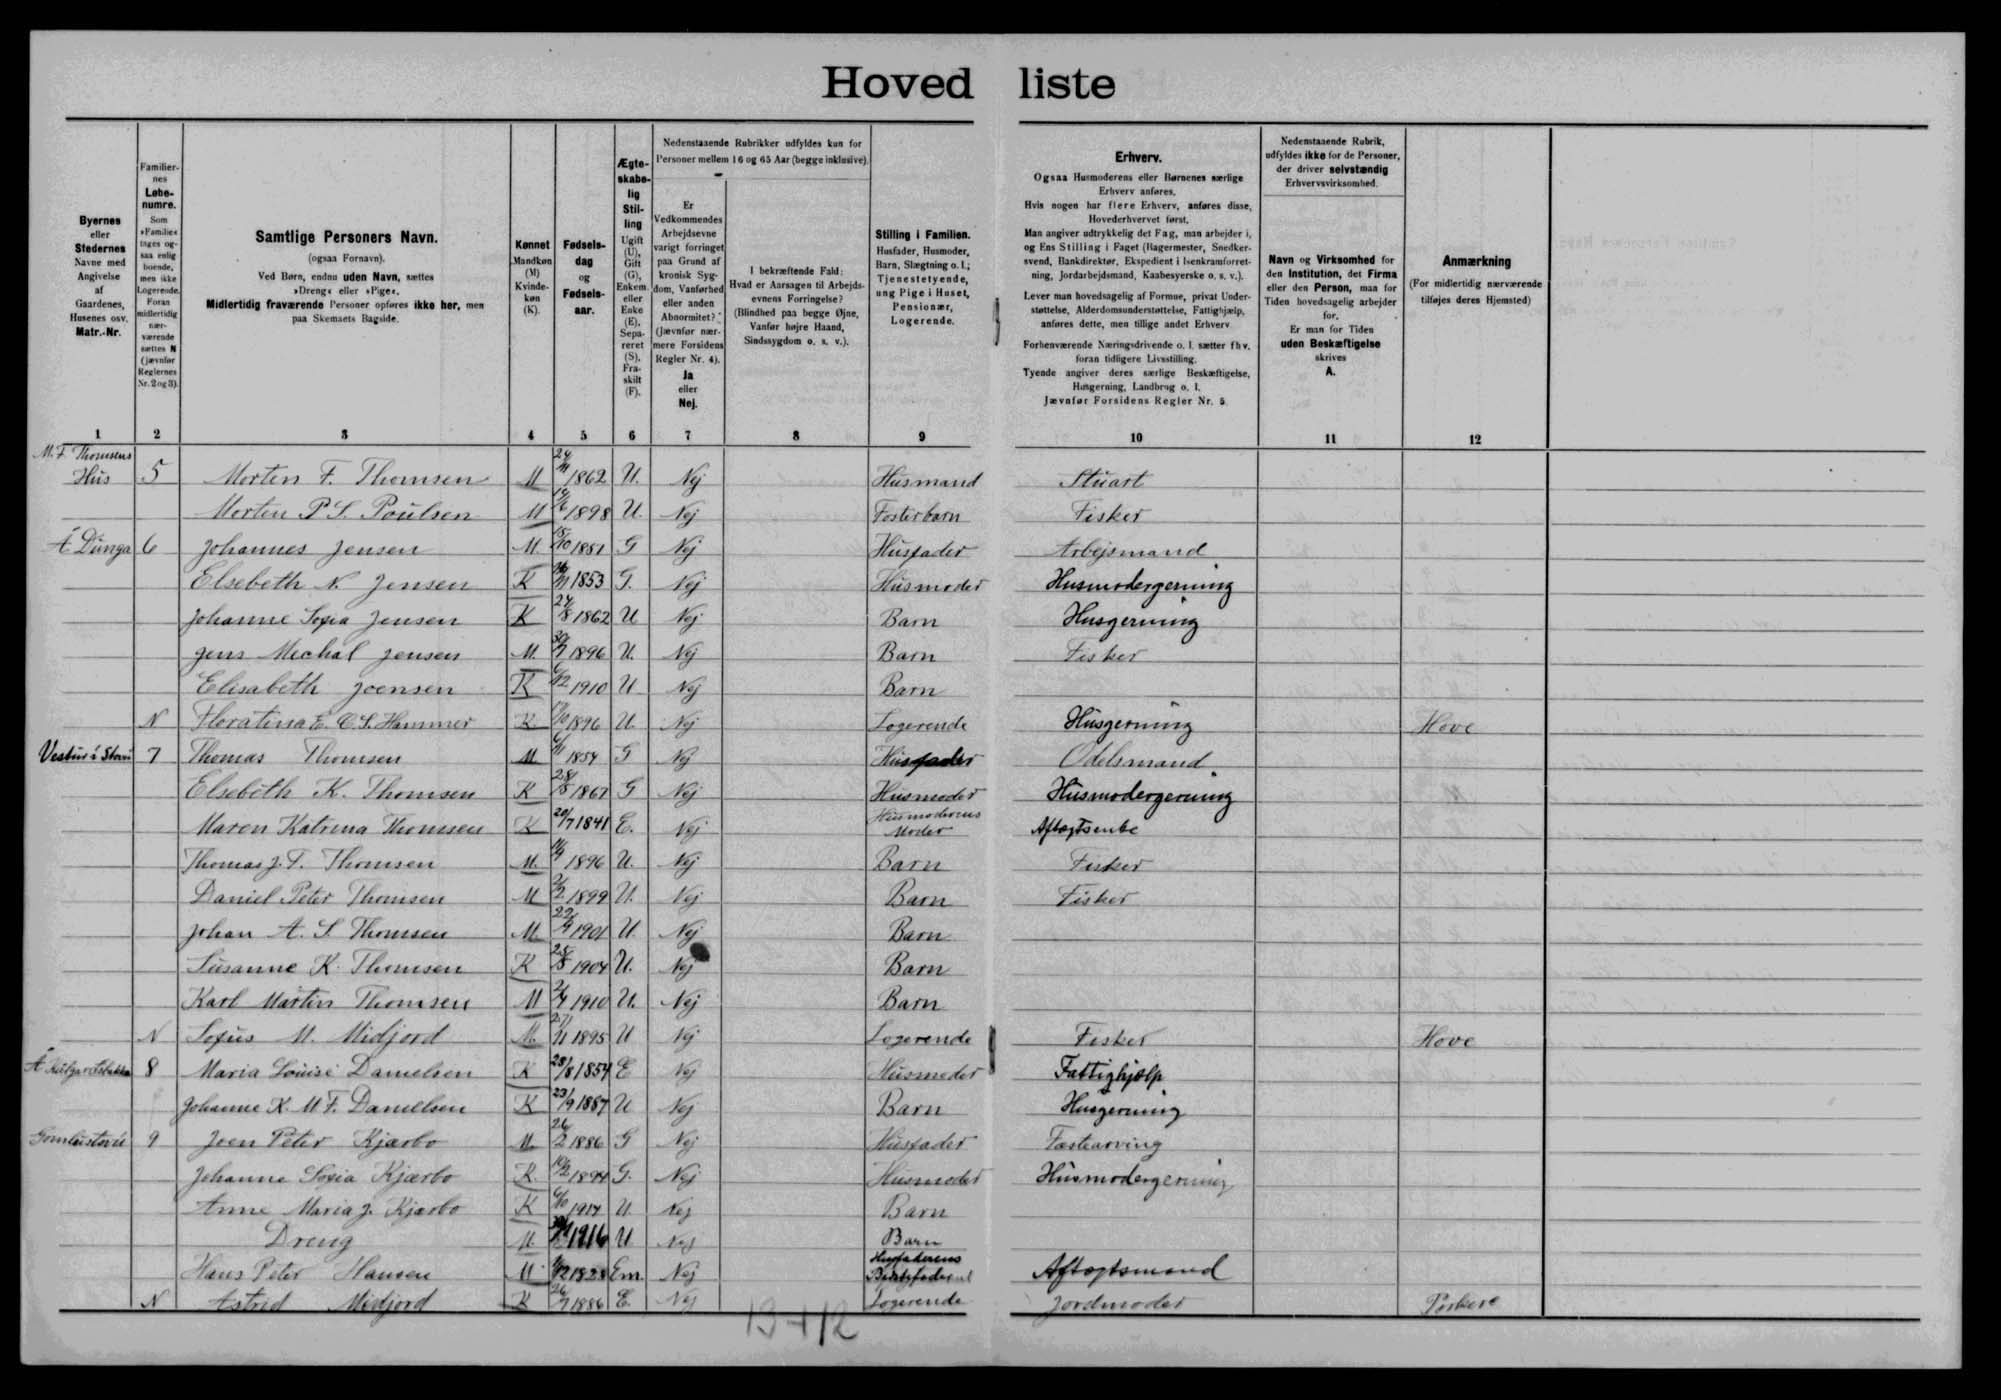 Hoved liste
Byernes eller Stedernes Navne med Angivelse af Gaardenes, Husenes osv. Matr.-Nr.
Familiernes Løbenumre. Som »Familie« tages ogsaa enlig boende, men ikke Logerende. Foran midlertidig nærværende sættes N (jævnfør Reglernes Nr. 2 og 3).
Samtlige Personers Navn. (ogsaa Fornavn). Ved Børn, endnu uden Navn, sættes »Dreng« eller »Pige«. Midlertidig fraværende Personer opføres ikke her, men paa Skemaets Bagside.
Kønnet Mandkøn (M) Kvindekøn (K).
Fødselsdag og Fødselsaar.
Ægteskabelig Stilling Ugift (U), Gift (G), Enkem. eller Enke (E), Separeret (S), Fraskilt (F).
Nedenstaaende Rubrikker udfyldes kun for Personer mellem 16 og 65 Aar (begge inklusive).
Er Vedkommendes Arbejdsevne varigt forringet paa Grund af kronisk Sygdom, Vanførhed eller anden Abnormitet? (Jævnfør nærmere Forsidens Regler Nr. 4). Ja eller Nej.
I bekræftende Fald: Hvad er Aarsagen til Arbejdsevnens Forringelse? (Blindhed paa begge Øjne, Vanfør højre Haand, Sindssygdom o. s. v.).
Stilling i Familien. Husfader, Husmoder, Barn, Slægtning o. l.; Tjenestetyende, ung Pige i Huset, Pensionær, Logerende.
Erhverv.
Ogsaa Husmoderens eller Børnenes særlige Erhverv anføres.
Hvis nogen har flere Erhverv, anføres disse, Hovederhvervet først.
Man angiver udtrykkelig det Fag, man arbejder i, og Ens Stilling i Faget (Bagermester, Snedkersvend, Bankdirektør, Ekspedient i Isenkramforretning, Jordarbejdsmand, Kaabesyerske o. s. v.).
Lever man hovedsagelig af Formue, privat Understøttelse, Alderdomsunderstøttelse, Fattighjælp, anføres dette, men tillige andet Erhverv
Forhenværende Næringsdrivende o. l. sætter fhv. foran tidligere Livsstilling.
Tyende angiver deres særlige Beskæftigelse, Husgerning, Landbrug o. l.
Jævnfør Forsidens Regler Nr. 5.
Nedenstaaende Rubrik, udfyldes ikke for de Personer, der driver selvstændig Erhvervsvirksomhed.
Navn og Virksomhed for den Institution, det Firma eller den Person, man for Tiden hovedsagelig arbejder for.
Er man for Tiden uden Beskæftigelse skrives A.
Anmærkning (For midlertidig nærværende tilføjes deres Hjemsted)
1 2 3 4 5 6 7 8 9 10 11 12
M. F. Thomsens Hus 5 Morten F. Thomsen M 24/11 1862 U. Nej Husmand Stuart
Morten P S. Poulsen M 1898 U. Nej Fosterbarn Fisker
Á Dunga 6 Johannes Jensen M. 18/10 1851 G Nej Husfader Arbejsmand
Elsebeth N. Jensen K 1853 G. Nej Husmoder Husmodergerning
Johanne Sofia Jensen K 24/8 1862 U Nej Barn Husgerning
Jens Michal Jensen M. 1896 U. Nej Barn Fisker
Elisabeth Joensen K 6/12 1910 U Nej Barn
N Floratina E. C. S. Hammer K 1896 U. Nej Logerende Husgerning Hove
7 Thomas Thomsen M 6/11 1854 G Nej Husfader Odelsmand
Elsebeth K. Thomsen K 28/8 1867 G Nej Husmoder Husmodergerning
Maren Katrina Thomsen K 20/7 1841 E. Nej Husmoderens Moder Aftægtsenke
Thomas J. F. Thomsen M. 1896 U. Nej Barn Fisker
Daniel Peter Thomsen M 1899 U. Nej Barn Fisker
Johan A. S. Thomsen M. 29/9 1901 U. Nej Barn
Susanne K. Thomsen K 25/8 1904 U. Nej Barn
Karl Martin Thomsen M 1910 U. Nej Barn
N Sofus M. Midjord M. 27/11 1895 U Nej Logerende Fisker Hove
8 Maria Louise Danielsen K 28/8 1854 E Nej Husmoder Fattighjælp
Johanne K. M F. Danielsen K 23/9 1887 U Nej Barn Husgerning
Gomlustovu 9 Joen Peter Kjærbo M. 26/2 1886 G Nej Husfader Fæstearving
Johanne Sofia Kjærbo K. 19/2 1894 G. Nej Husmoder Husmodergerning
Anne Maria J. Kjærbo K 6/10 1914 U Nej Barn
Dreng M. 1916 U Nej Barn
Hans Peter Hansen M 1828 Em. Nej Husfaderens Aftægtsmand
N Astrid Midjord K 1886 E. Nej Logerende Jordmoder Porkere
13+12